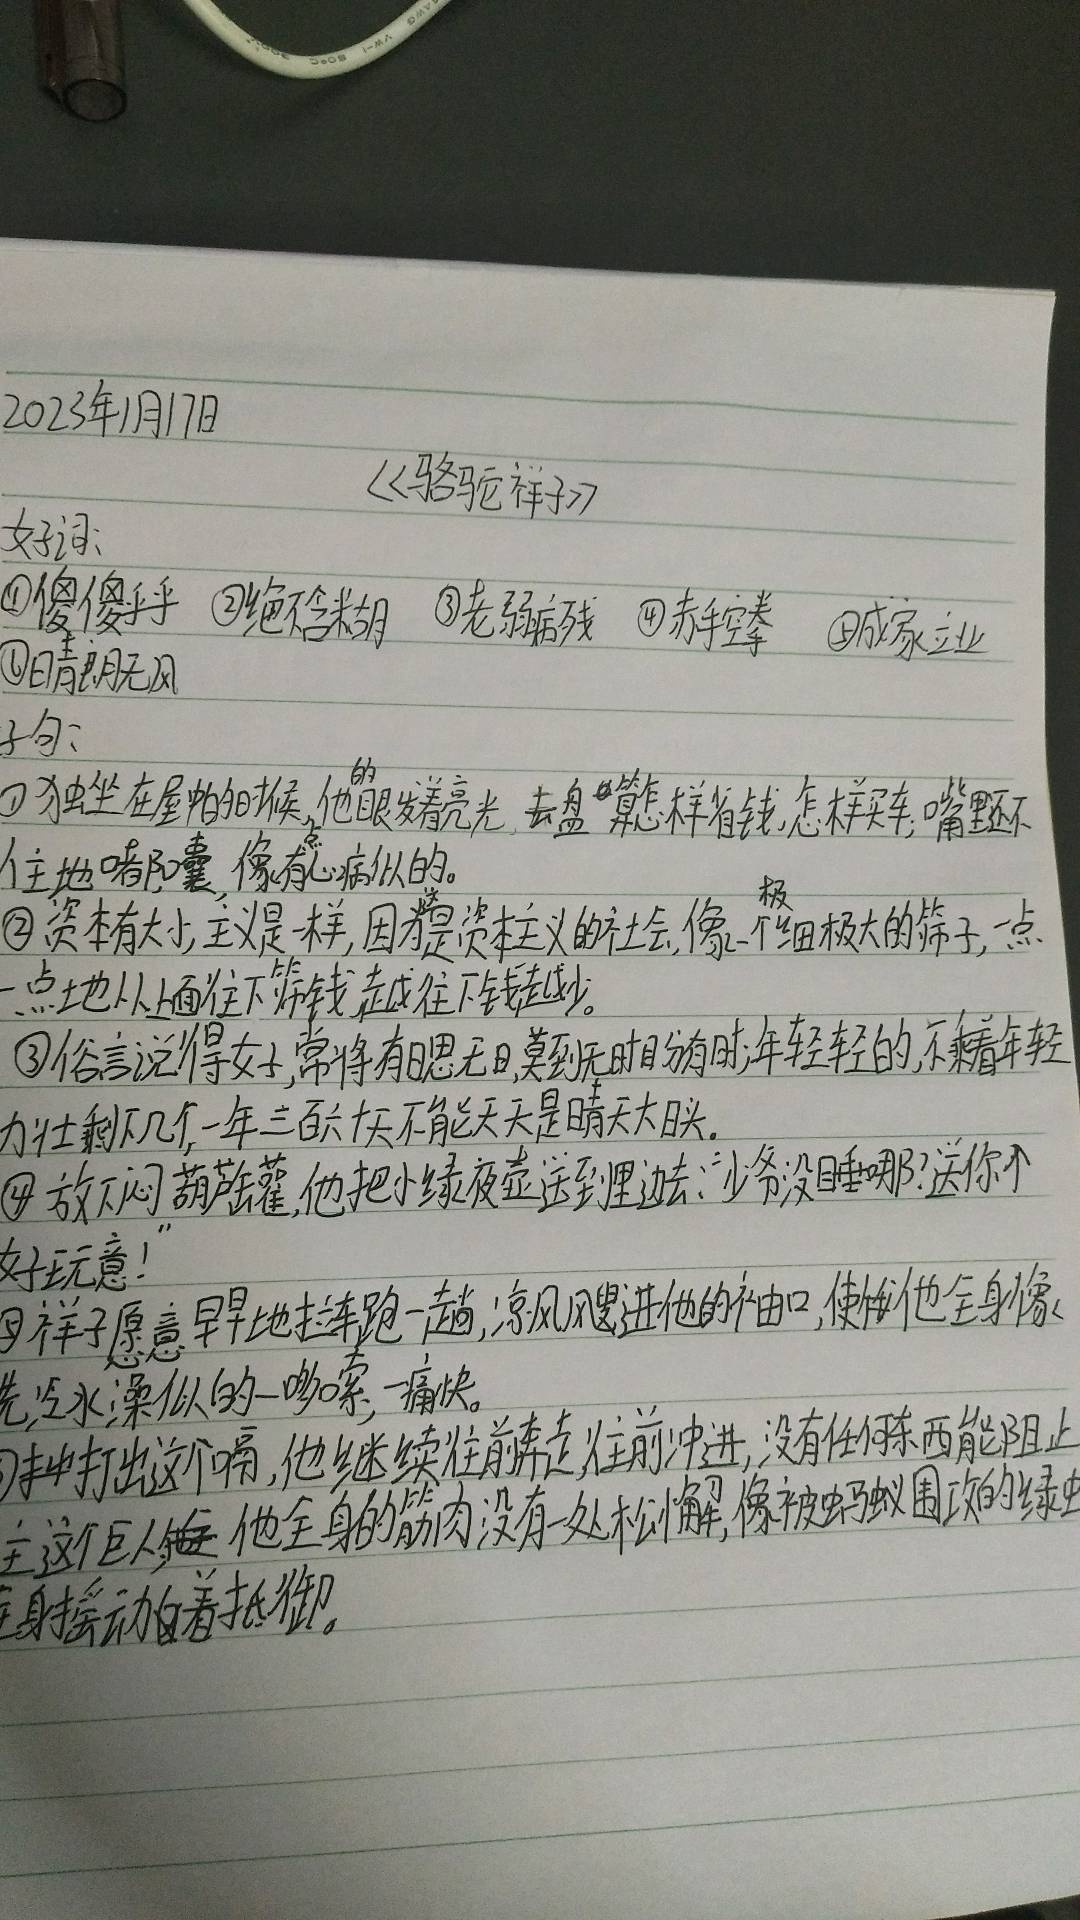 AWG VW-1 80°C 300V
2023年1月17日
《骆驼祥子》
好词:
①傻傻乎乎 ②绝不含糊 ③老弱病残 ④赤手空拳 ⑤成家立业
⑥晴朗无风
子句:
①独坐在屋中的时候,他的眼发着亮光,去盘算怎样省钱,怎样买车;嘴里还不
住地嘟囔,像有点心病似的。
②资本有大小,主义是一样,因为这是资本主义的社会,像一个极细极大的筛子,一点
一点地从上面往下筛钱,越往下钱越少。
③俗言说得好,常将有日思无日,莫到无时盼有时;年轻轻的,不乘着年轻
力壮剩下几个,一年三百六十天不能天天是晴天大日头。
④放下闷葫芦罐,他把小绿夜壶送到里边去:"少爷没睡哪?送你个
好玩意!"
⑤祥子愿意早早地拉车跑一趟,凉风飕进他的袖口,使他全身像
洗冷水澡似的一哆嗦,一痛快。
打出这个嗝,他继续往前奔走,往前冲进,没有任何东西能阻止
住这个巨人,他全身的筋肉没有一处松懈,像被蚂蚁围攻的绿虫
全身摇动着抵御。